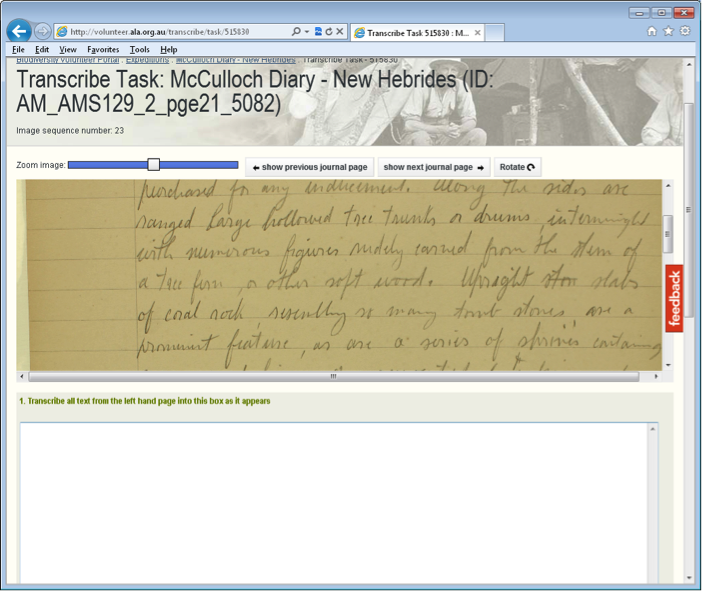 http://volunteer.ala.org.au/transcribe/task/515830
Transcribe Task 515830 : M...
File Edit View Favorites Tools Help
Biodiversity Volunteer Portal Expeditions McCulloch Diary - New Hebrides Transcribe Task - 515830
Transcribe Task: McCulloch Diary - New Hebrides (ID:
AM_AMS129_2_pge21_5082)
Image sequence number: 23
Zoom image: show previous journal page show next journal page Rotate
purchased for any inducement. Along the sides are
ranged large hollowed tree trunks or drums, intermingl
with numerous figures rudely carved from the stem of
a tree fern, or other soft wood. Upright ston slabs
of coral rock, resembling so many tomb stones, are a
prominent feature, as are a series of shrines containing
feedback
1. Transcribe all text from the left hand page into this box as it appears